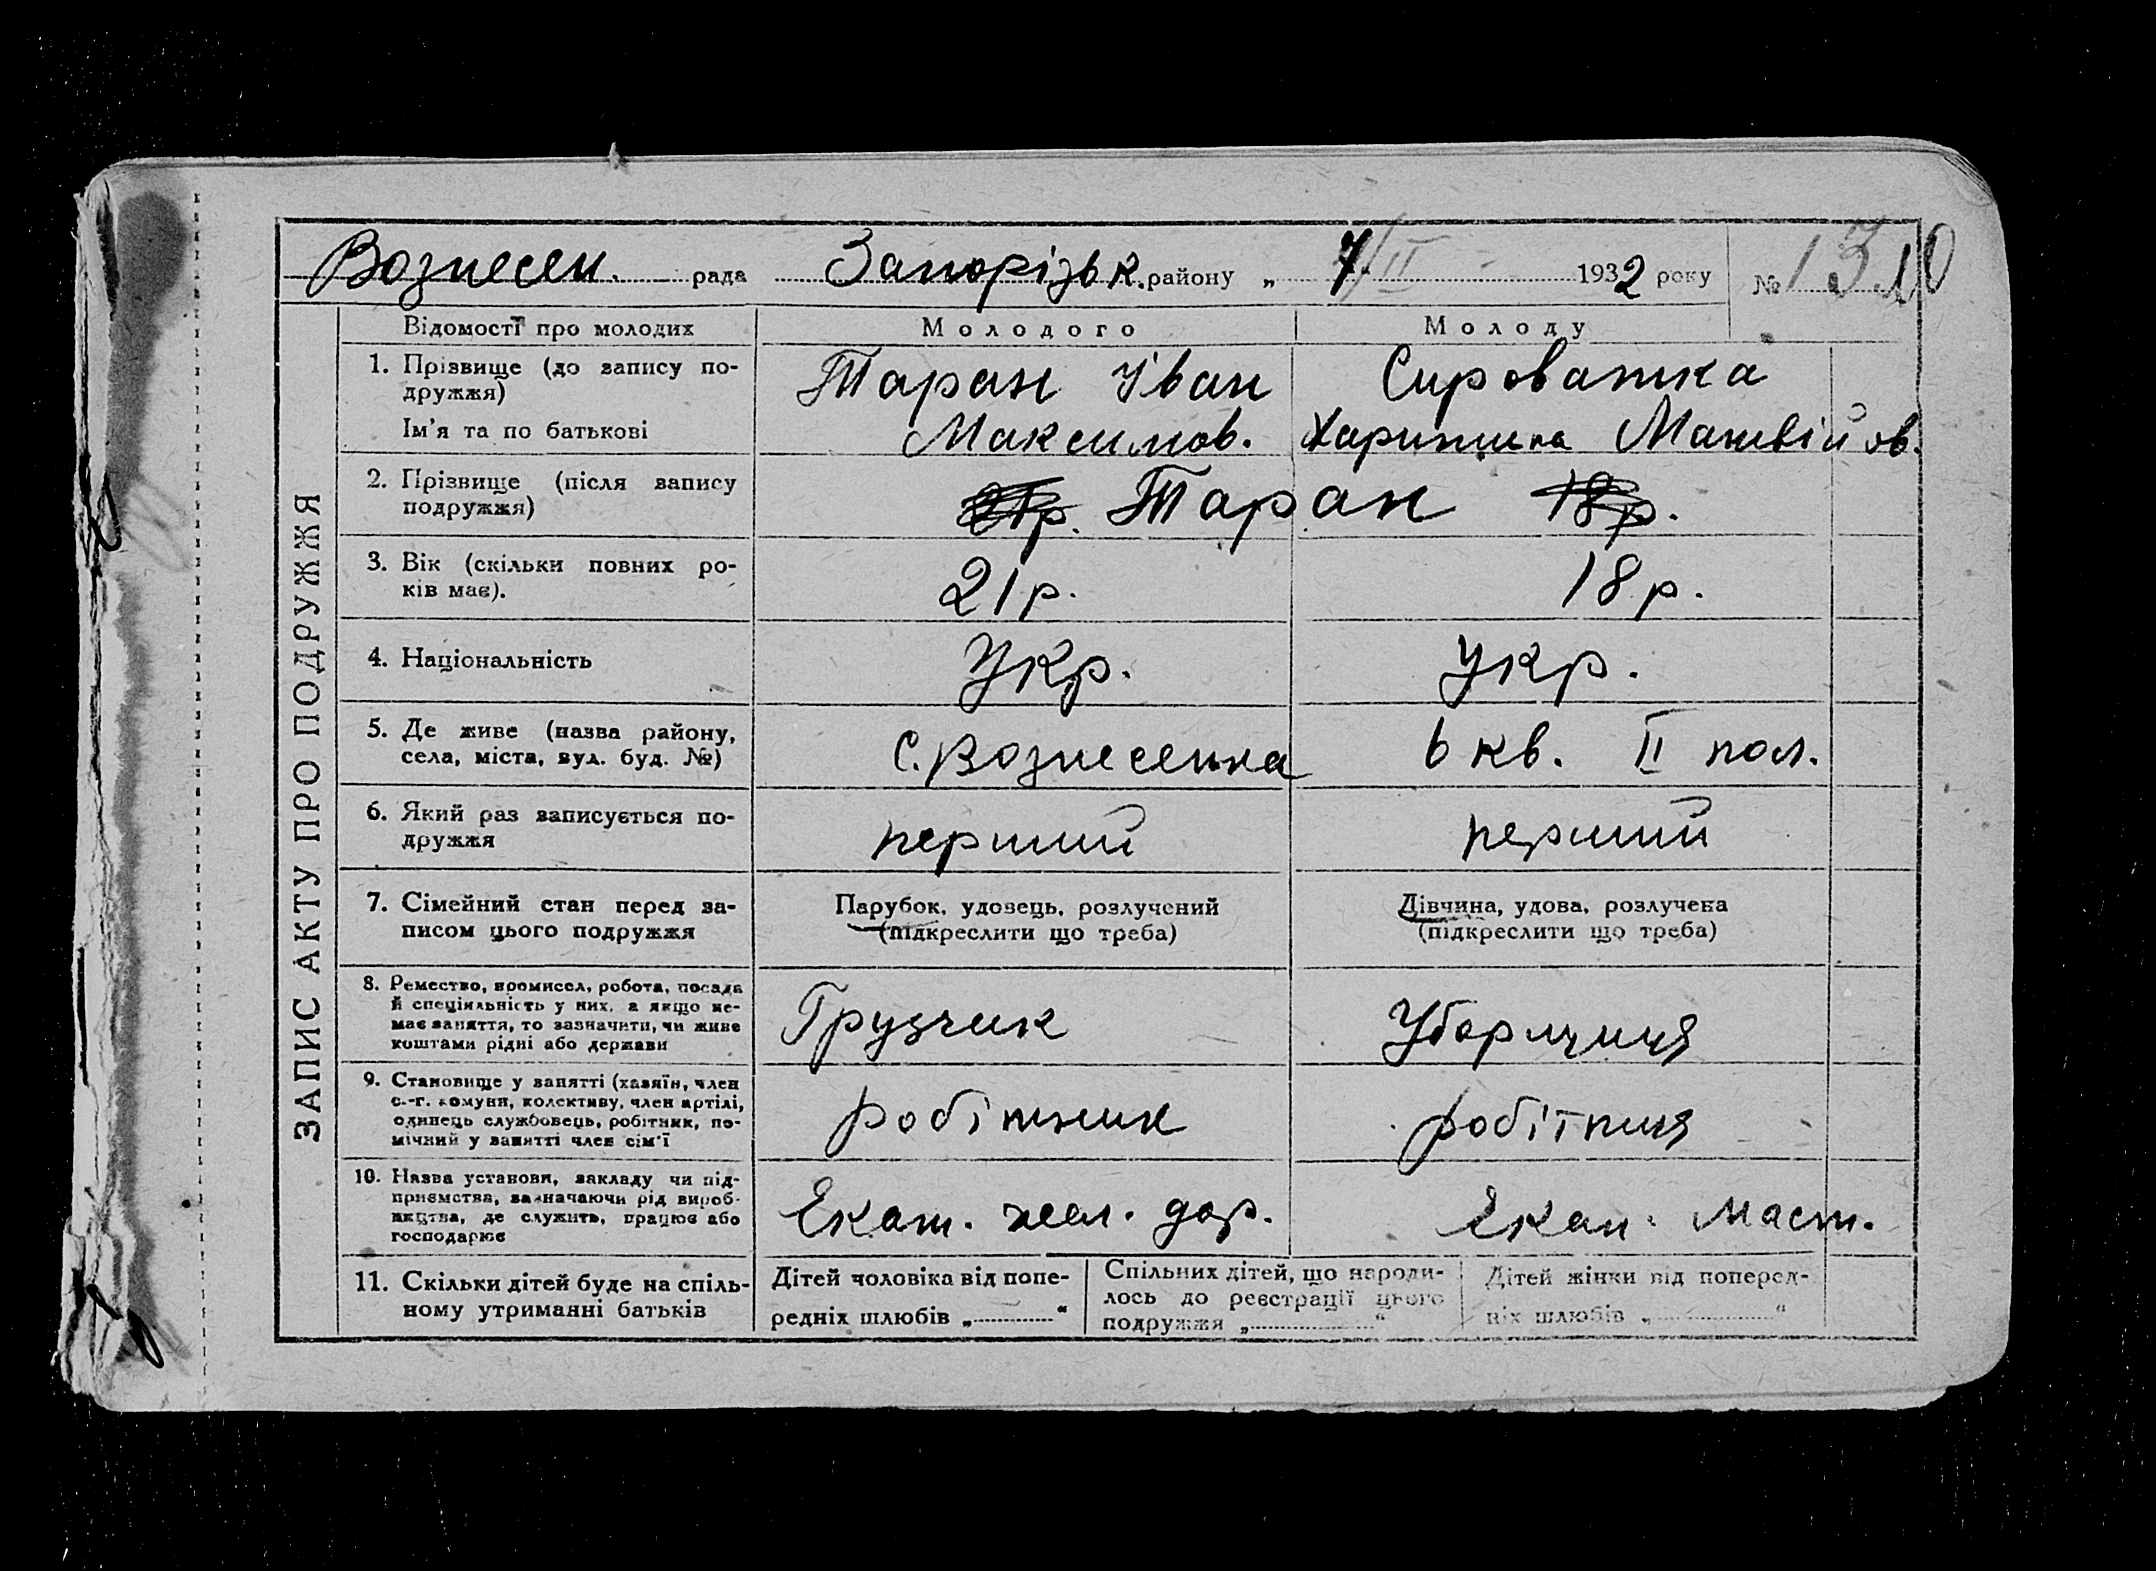 Вознесен. рада Запорізьк. району „ 7/II 1932 року № 13 10
ЗАПИС АКТУ ПРО ПОДРУЖЖЯ
Відомості про молодих Молодого Молоду
1. Прізвище (до запису по-
дружжя)
Ім'я та по батькові
Таран Іван
Максимов.
Сироватка
Харитина Матвійов.
2. Прізвище (після запису
подружжя)
21р. Таран 18р.
3. Вік (скільки повних ро-
ків має).
21р.
18р.
4. Національність
Укр.
укр.
5. Де живе (назва району,
села, міста, вул. буд. №)
С. Вознесенка
6 кв. II пол.
6. Який раз записується по-
дружжя
перший
перший
7. Сімейний стан перед за-
писом цього подружжя
Парубок, удовець, розлучений
(підкреслити що треба)
Дівчина, удова, розлучена
(підкреслити що треба)
8. Ремество, промисел, робота, посада
й спеціяльність у них, а якщо не-
має заняття, то зазначити, чи живе
коштами рідні або держави
Грузчик
Уборщиця
9. Становище у занятті (хазяїн, член
с.-г. комуни, колективу, член артілі,
одинець службовець, робітник, по-
мічний у занятті член сім'ї
робітник
робітниця
10. Назва установи, закладу чи під-
приємства, зазначаючи рід вироб-
ництва, де служить, працює або
господарює
Екат. жел. дор.
Екат. маст.
11. Скільки дітей буде на спіль-
ному утриманні батьків
Дітей чоловіка від попе-
редніх шлюбів „ “
Спільних дітей, що народи-
лось до реєстрації цього
подружжя „ “
Дітей жінки від поперед-
ніх шлюбів „ “